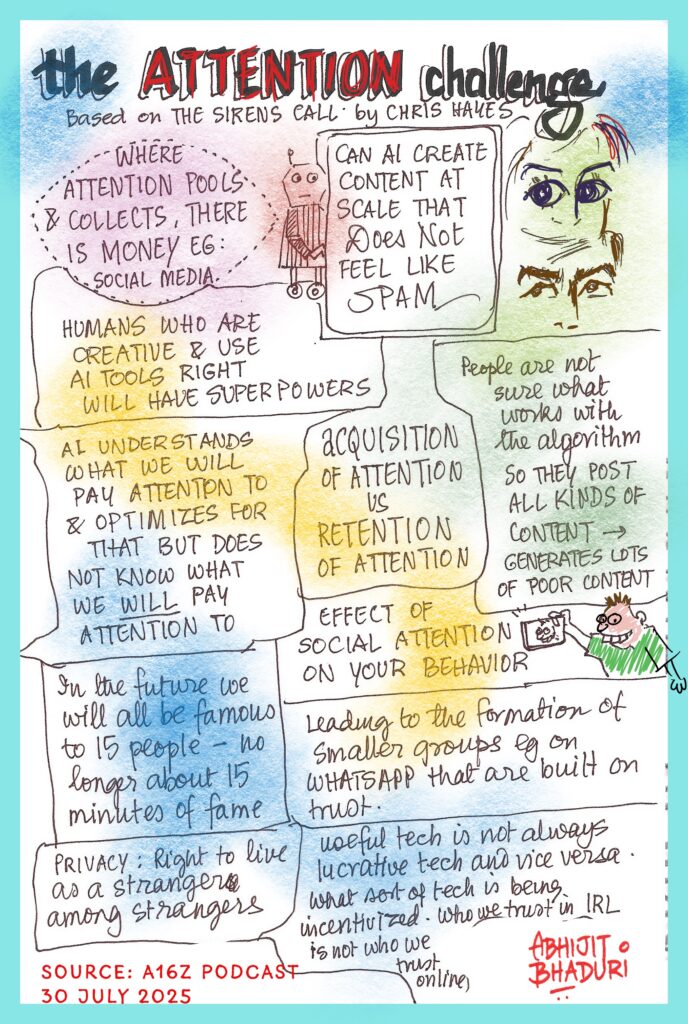 the ATTENTION challenge
Based on THE SIRENS CALL by CHRIS HAYES
WHERE
ATTENTION POOLS
& COLLECTS, THERE
IS MONEY EG:
SOCIAL MEDIA
CAN AI CREATE
CONTENT AT
SCALE THAT
DOES NOT
FEEL LIKE
SPAM
HUMANS WHO ARE
CREATIVE & USE
AI TOOLS RIGHT
WILL HAVE SUPERPOWERS
People are not
sure what
works with
the algorithm
SO THEY POST
ALL KINDS OF
CONTENT →
GENERATES LOTS
OF POOR CONTENT
AI UNDERSTANDS
WHAT WE WILL
PAY ATTENTON TO
& OPTIMIZES FOR
THAT BUT DOES
NOT KNOW WHAT
WE WILL PAY
ATTENTION TO
ACQUISITION
OF ATTENTION
VS
RETENTION
OF ATTENTION
EFFECT OF
SOCIAL ATTENTION
ON YOUR BEHAVIOR
In the future we
will all be famous
to 15 people – no
longer about 15
minutes of fame
Leading to the formation of
smaller groups eg on
WHATSAPP that are built on
trust.
PRIVACY: Right to live
as a stranger
among strangers
useful tech is not always
lucrative tech and vice versa.
what sort of tech is being
incentivized. who we trust in IRL
is not who we
trust
online,
ABHIJIT
BHADURI
SOURCE: A16Z PODCAST
30 JULY 2025